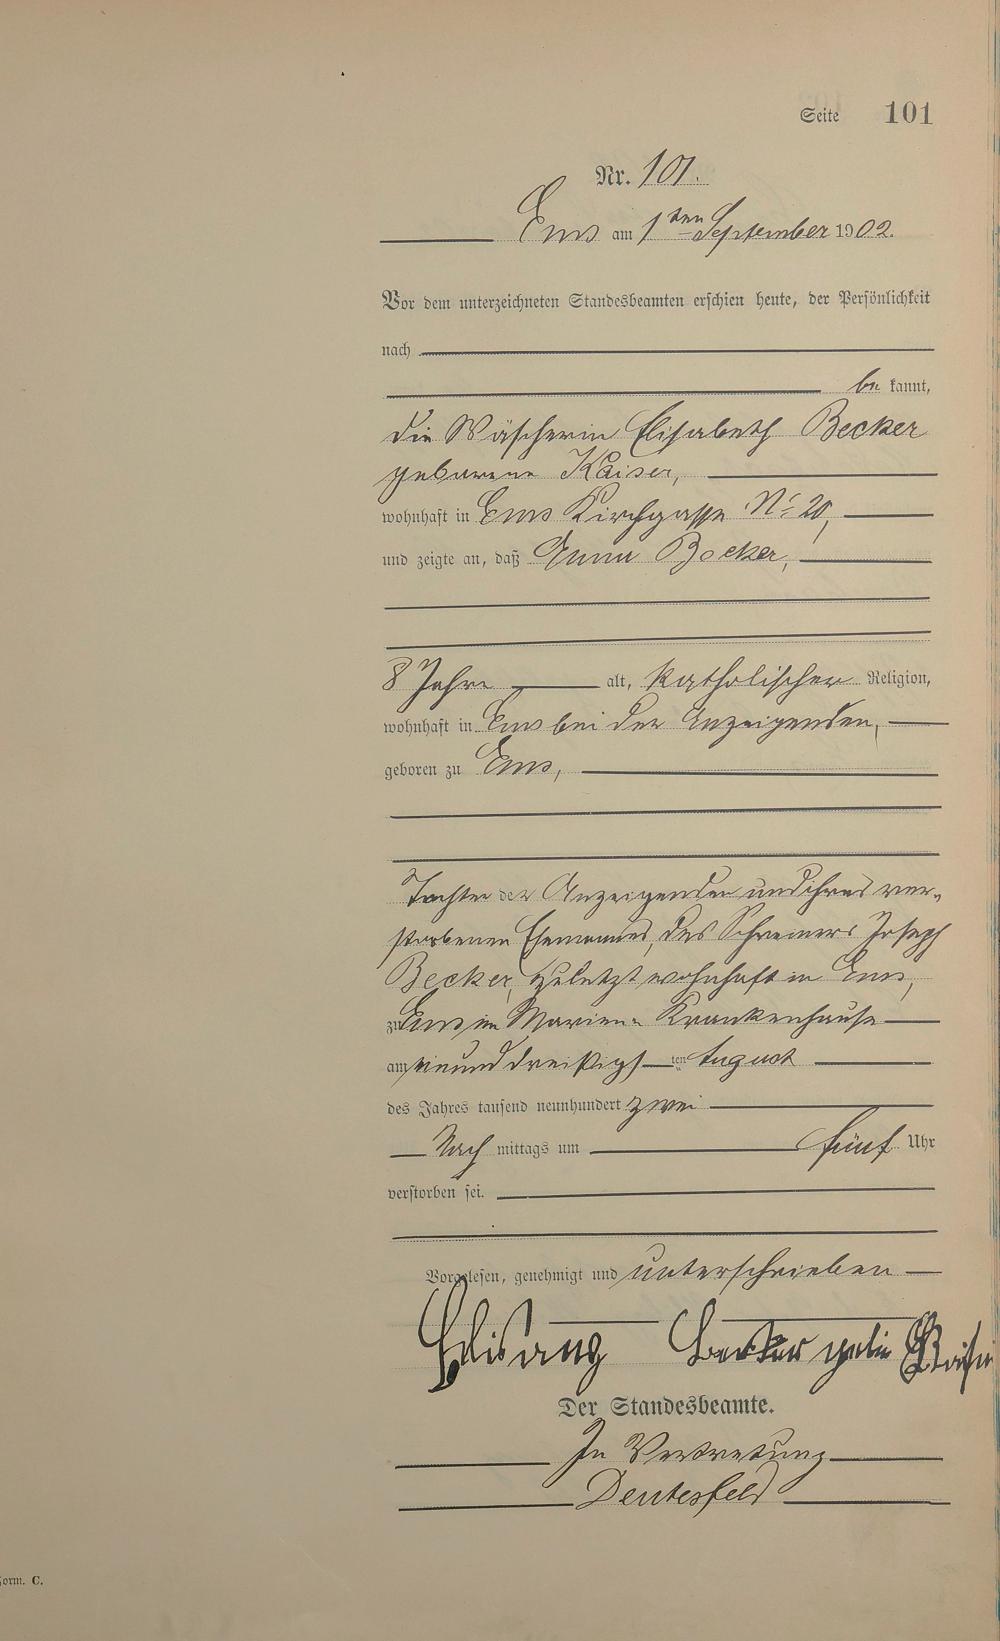 Seite 101
Nr. 101.
Ems am 1ten September 1902.
Vor dem unterzeichneten Standesbeamten erschien heute, der Persönlichkeit
nach
be kannt,
die Wäscherin Elisabeth Becker
geborene Kaiser,
wohnhaft in Ems Kirchgasse No 20,
und zeigte an, daß Anna Becker,
8 Jahre alt, katholischer Religion,
wohnhaft in Ems bei der Anzeigenden,
geboren zu Ems,
Tochter der Anzeigenden und ihres ver-
storbenen Ehemannes, des Schreiners Joseph
Becker, zuletzt wohnhaft in Ems,
zu Ems im Marien- Krankenhause
am einunddreißigsten August
des Jahres tausend neunhundert zwei
Nach mittags um fünf Uhr
verstorben sei.
Vorgelesen, genehmigt und unterschrieben
Becker
Der Standesbeamte.
In Vertretung
Form. C.